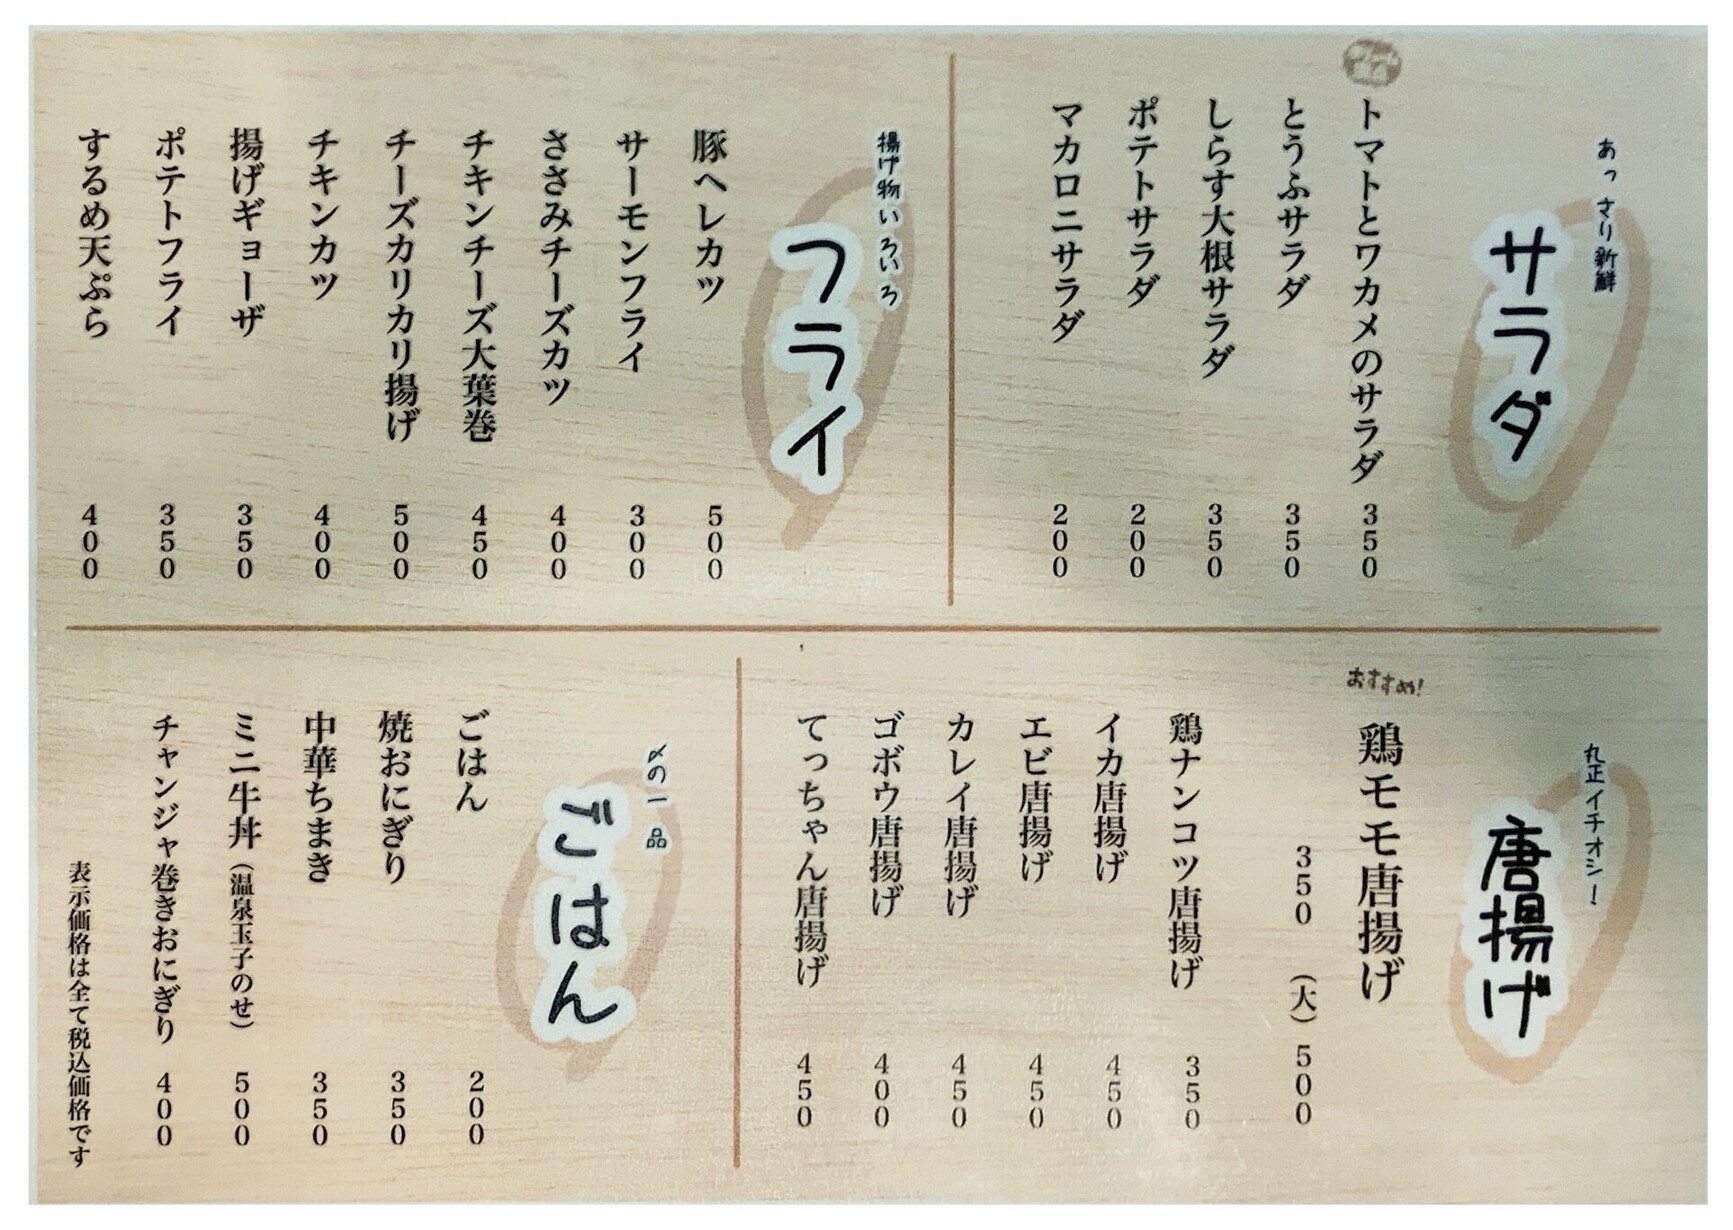 あっさり新鮮
サラダ
トマトとワカメのサラダ 350
とうふサラダ 350
しらす大根サラダ 350
ポテトサラダ 200
マカロニサラダ 200
揚げ物いろいろ
フライ
豚ヘレカツ 500
サーモンフライ 300
ささみチーズカツ 400
チキンチーズ大葉巻 450
チーズカリカリ揚げ 500
チキンカツ 400
揚げギョーザ 350
ポテトフライ 350
するめ天ぷら 400
丸正イチオシー
唐揚げ
おすすめ!
鶏モモ唐揚げ
350 (大) 500
鶏ナンコツ唐揚げ 350
イカ唐揚げ 450
エビ唐揚げ 450
カレイ唐揚げ 450
ゴボウ唐揚げ 400
てっちゃん唐揚げ 450
〆の一品
ごはん
ごはん 200
焼おにぎり 350
中華ちまき 350
ミニ牛丼(温泉玉子のせ) 500
チャンジャ巻きおにぎり 400
表示価格は全て税込価格です